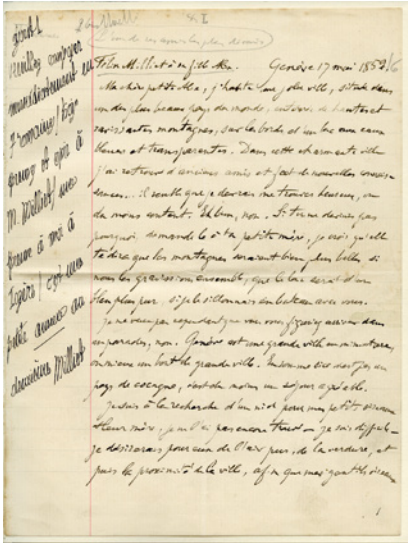 Félix Milliet à sa fille Alix. Genève 17 mai 1852
Ma chère petite Alix, j'habite une jolie ville, située dans
un des plus beaux pays du monde, entourée de hautes et
ravissantes montagnes, sur les bords d'un lac aux eaux
bleues et transparentes. Dans cette charmante ville
j'ai retrouvé d'anciens amis et fait de nouvelles connais-
sances... il semble que je devrais me trouver heureux, ou
du moins content. Eh bien, non. Si tu ne devines pas
pourquoi, demande-le à ta petite mère, je crois qu'elle
te dira que les montagnes seraient bien plus belles si
nous les gravissions ensemble, que le lac serait d'un
bleu plus pur, si je le sillonnais en bateau avec vous.
Je ne veux pas cependant que vous vous figuriez arriver dans
un paradis, non. Genève est une grande ville en miniature,
ou mieux un bout de grande ville. Ensomme si ce n'est pas un
pays de cocagne, c'est du moins un séjour agréable.
Je suis à la recherche d'un nid pour mes petits oiseaux
et leur mère, je ne l'ai pas encore trouvé — je suis difficile —
je désirerais pour eux de l'air pur, de la verdure, et
puis la proximité de la ville, afin que mes gentils oiseaux
1
M. Milliet, une
petite
deuxième Milliet